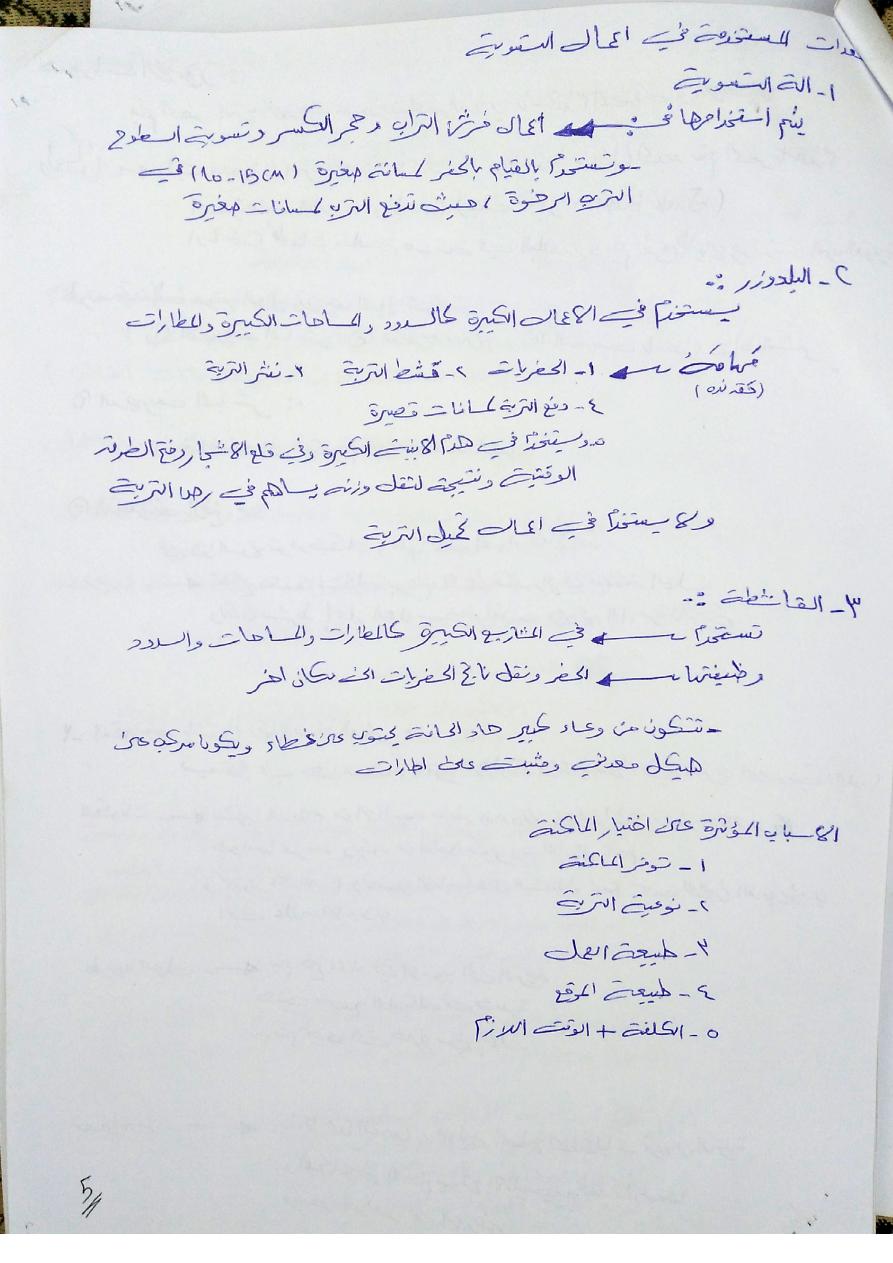 معدات المستخدمة في اعمال التسوية
١- الة التسوية
يتم أستخدامها في ← أعمال فرش التراب وحجر الكسر وتسوية السطوح
- وتستخدم بالقيام بالحفر لمسافة صغيرة (10-15cm) في
الترب الرخوة ، حيث تدفع الترب لمسافات صغيرة
٢- البلدوزر :-
يستخدم في الاعمال الكبيرة كالسدود والمساحات الكبيرة والمطارات
مهامهُ ← ١- الحفريات ٢- قشط التربة ٣- نشر التربة
٤- دفع التربة لمسافات قصيرة
٥- ويستخدم في هدم الابنية الكبيرة وفي قلع الاشجار وفتح الطرق
الوقتية ونتيجة لثقل وزنه يساهم في رص التربة
ولا يستخدم في اعمال تحميل التربة
٣- القاشطة :-
تستخدم ← في المشاريع الكبيرة كالمطارات والمساحات والسدود
وظيفتها ← الحفر ونقل ناتج الحفريات الى مكان اخر
- تتكون من وعاء كبير حاد الحافة يحتوي على غطاء ويكون مركب على
هيكل معدني ومثبت على اطارات
الاسباب المؤثرة على اختيار الماكنة
١- توفر الماكنة
٢- نوعية التربة
٣- طبيعة العمل
٤- طبيعة الموقع
٥- الكلفة + الوقت اللازم
5//